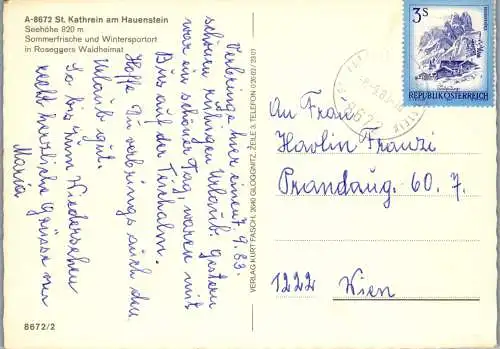 A-8672 St. Kathrein am Hauenstein
Seehöhe 820 m
Sommerfrische und Wintersportort
in Roseggers Waldheimat
7.9.83.
Verbringe hier einen
schönen ruhigen Urlaub. Gestern
war ein schöner Tag, waren mit
Bus auf der Teichalm.
Hoffe Du verbringst auch den
Urlaub gut.
So bis zum Wiedersehen
recht herzliche Grüsse von
Maria
8672/2
VERLAG KURT FASCH, 2640 GLOGGNITZ, ZEILE 3, TELEFON
3 S
REPUBLIK ÖSTERREICH
8672
An Frau
Havlin Franzi
Prandaug. 60. 7.
1222 Wien